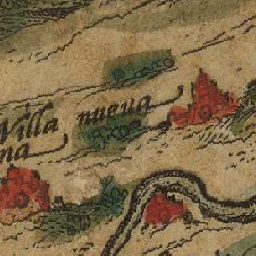 Villa nuoua
na